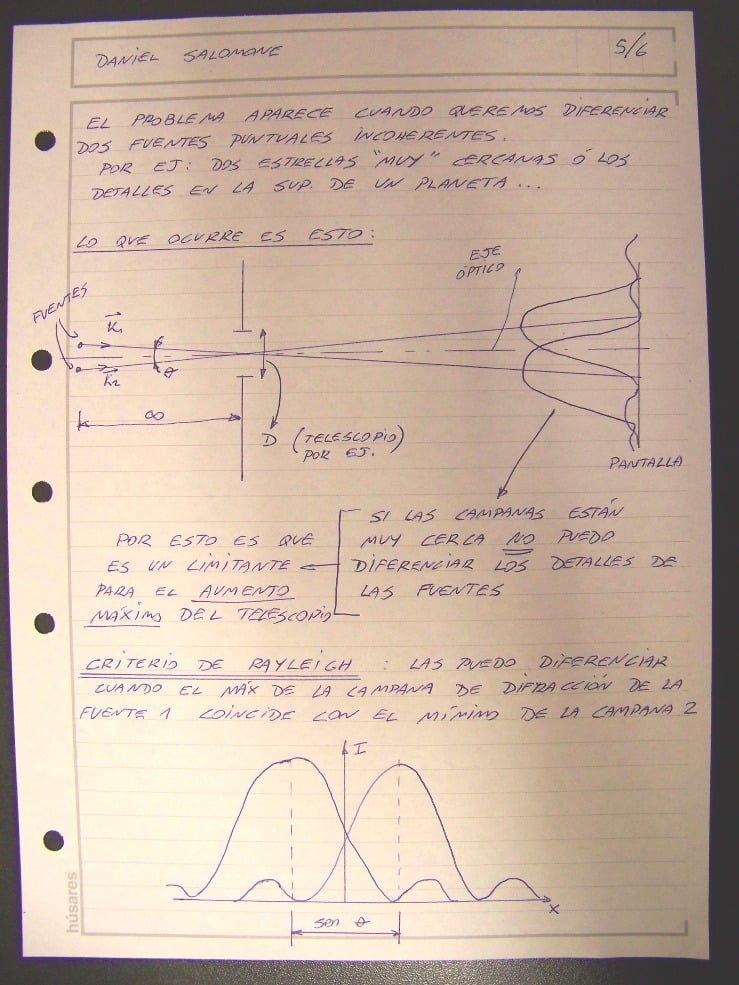 DANIEL SALOMONE
5/6
EL PROBLEMA APARECE CUANDO QUEREMOS DIFERENCIAR
DOS FUENTES PUNTUALES INCOHERENTES.
POR EJ: DOS ESTRELLAS "MUY" CERCANAS Ó LOS
DETALLES EN LA SUP. DE UN PLANETA...
LO QUE OCURRE ES ESTO:
EJE
ÓPTICO
FUENTES
K1
K2
θ
∞
D (TELESCOPIO)
POR EJ.
PANTALLA
SI LAS CAMPANAS ESTÁN
MUY CERCA NO PUEDO
DIFERENCIAR LOS DETALLES DE
LAS FUENTES
POR ESTO ES QUE
ES UN LIMITANTE
PARA EL AUMENTO
MÁXIMO DEL TELESCOPIO
CRITERIO DE RAYLEIGH : LAS PUEDO DIFERENCIAR
CUANDO EL MÁX DE LA CAMPANA DE DIFRACCIÓN DE LA
FUENTE 1 COINCIDE CON EL MÍNIMO DE LA CAMPANA 2
I
x
sen θ
húsares